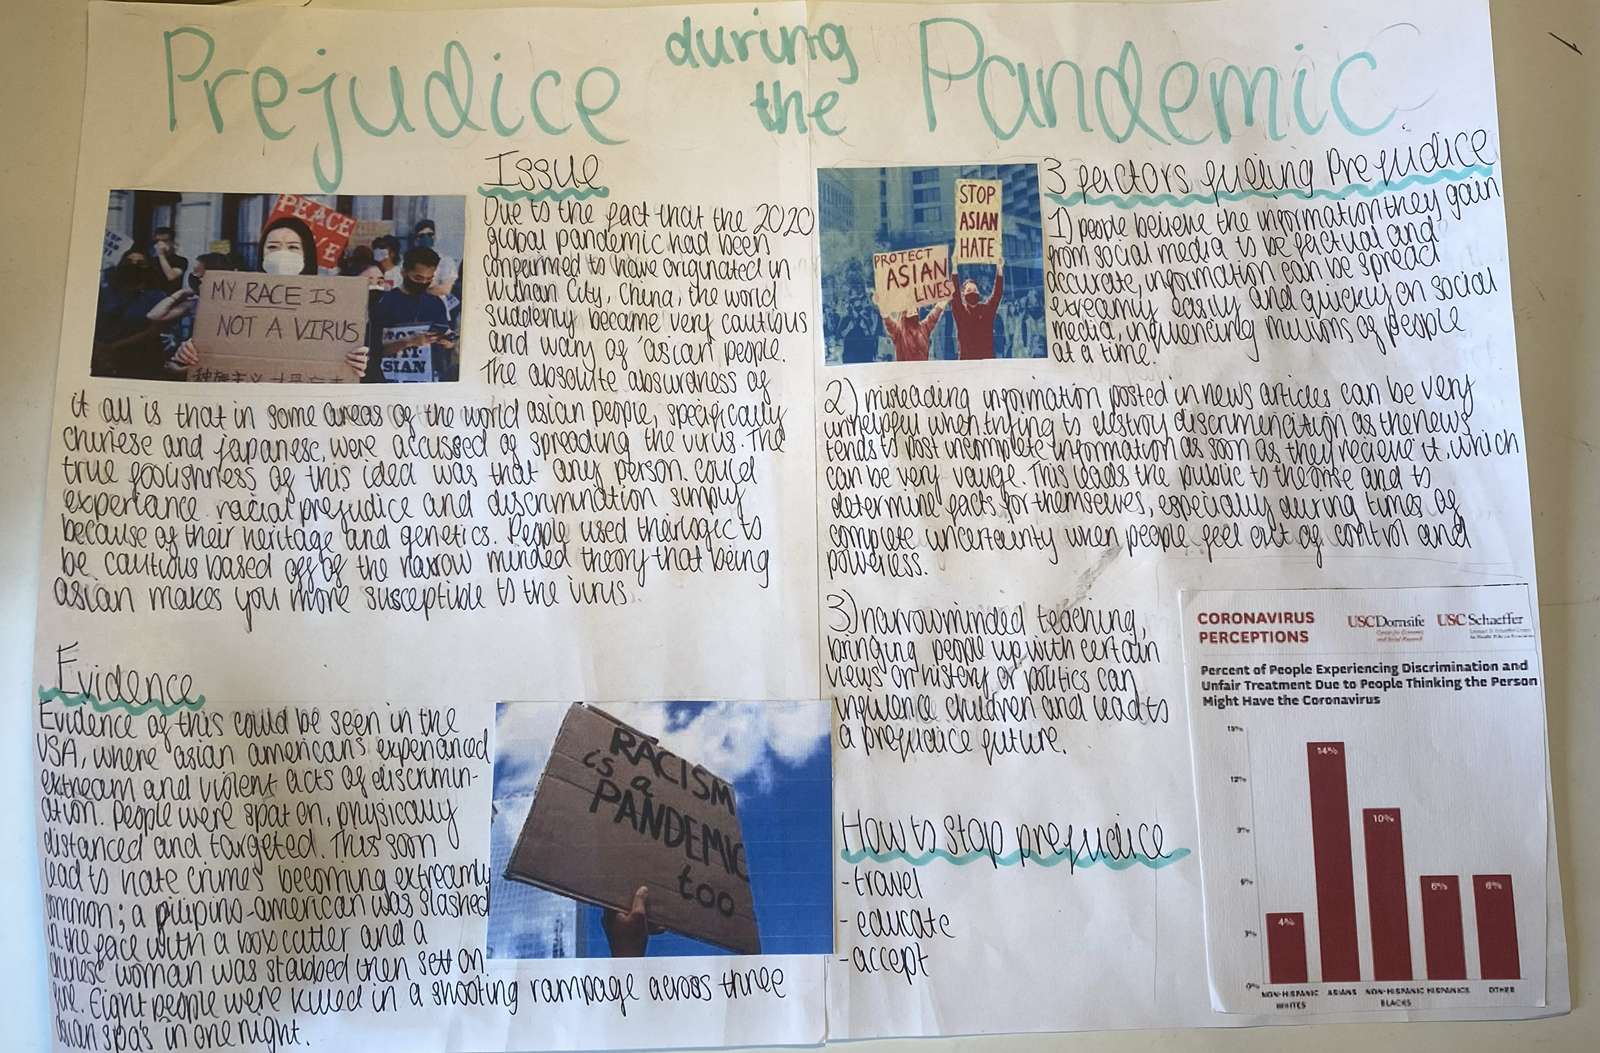 Prejudice during the Pandemic
Issue
Due to the fact that the 2020
global pandemic had been
confirmed to have originated in
Wuhan City, China, the world
suddenly became very cautious
and wary of 'asian' people.
The absolute absurdness of
it all is that in some areas of the world asian people, specifically
chinese and japanese, were accussed of spreading the virus. The
true foolishness of this idea was that any person could
experiance racial prejudice and discrimination simply
because of their heritage and genetics. People used their logic to
be cautious based off of the narrow minded theory that being
asian makes you more susceptible to the virus.
PEACE
MY RACE IS
NOT A VIRUS
ASIAN
Evidence
Evidence of this could be seen in the
USA, where asian americans experianced
extream and violent acts of discrimin-
ation. People were spat on, physically
distanced and targeted. This soon
lead to hate crimes becoming extreamly
common; a filipino-american was slashed
in the face with a box cutter and a
chinese woman was stabbed then set on
fire. Eight people were killed in a shooting rampage across three
asian spa's in one night.
RACISM
is a
PANDEMIC
too
STOP
ASIAN
HATE
PROTECT
ASIAN
LIVES
3 factors fulling Prejudice
1) people believe the information they gain
from social media to be factual and
accurate, information can be spread
extreamly easily and quickly on social
media, influencing millions of people
at a time.
2) misleading information posted in news articles can be very
unhelpful when trying to destroy discrimination as the news
tends to post incomplete information as soon as they recieve it, which
can be very vauge. This leads the public to theorise and to
determine facts for themselves, especially during times of
complete uncertainty when people feel out of control and
powerless.
3) narrowminded teaching,
bringing people up with certain
views on history or politics can
influence children and lead to
a prejudice future.
How to stop prejudice
- travel
- educate
- accept
CORONAVIRUS
PERCEPTIONS
USC Dornsife
USC Schaeffer
Percent of People Experiencing Discrimination and
Unfair Treatment Due to People Thinking the Person
Might Have the Coronavirus
15%
12%
9%
6%
3%
0%
4%
14%
10%
6%
6%
NON-HISPANIC WHITES
ASIANS
NON-HISPANIC BLACKS
HISPANICS
OTHER